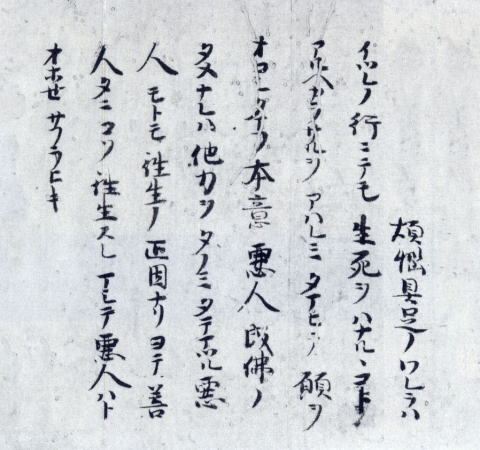 煩惱具足ノワレラハ
イツレノ行ニテモ生死ヲハナルヽコト
アルヘカラサルヲアハレミタマヒテ願ヲ
オコシタマフ本意悪人成佛ノ
タメナレハ他力ヲタノミタテマツル悪
人モトモ往生ノ正因ナリヨテ善
人タニコソ往生スレマシテ悪人ハト
オホセサフラヒキ